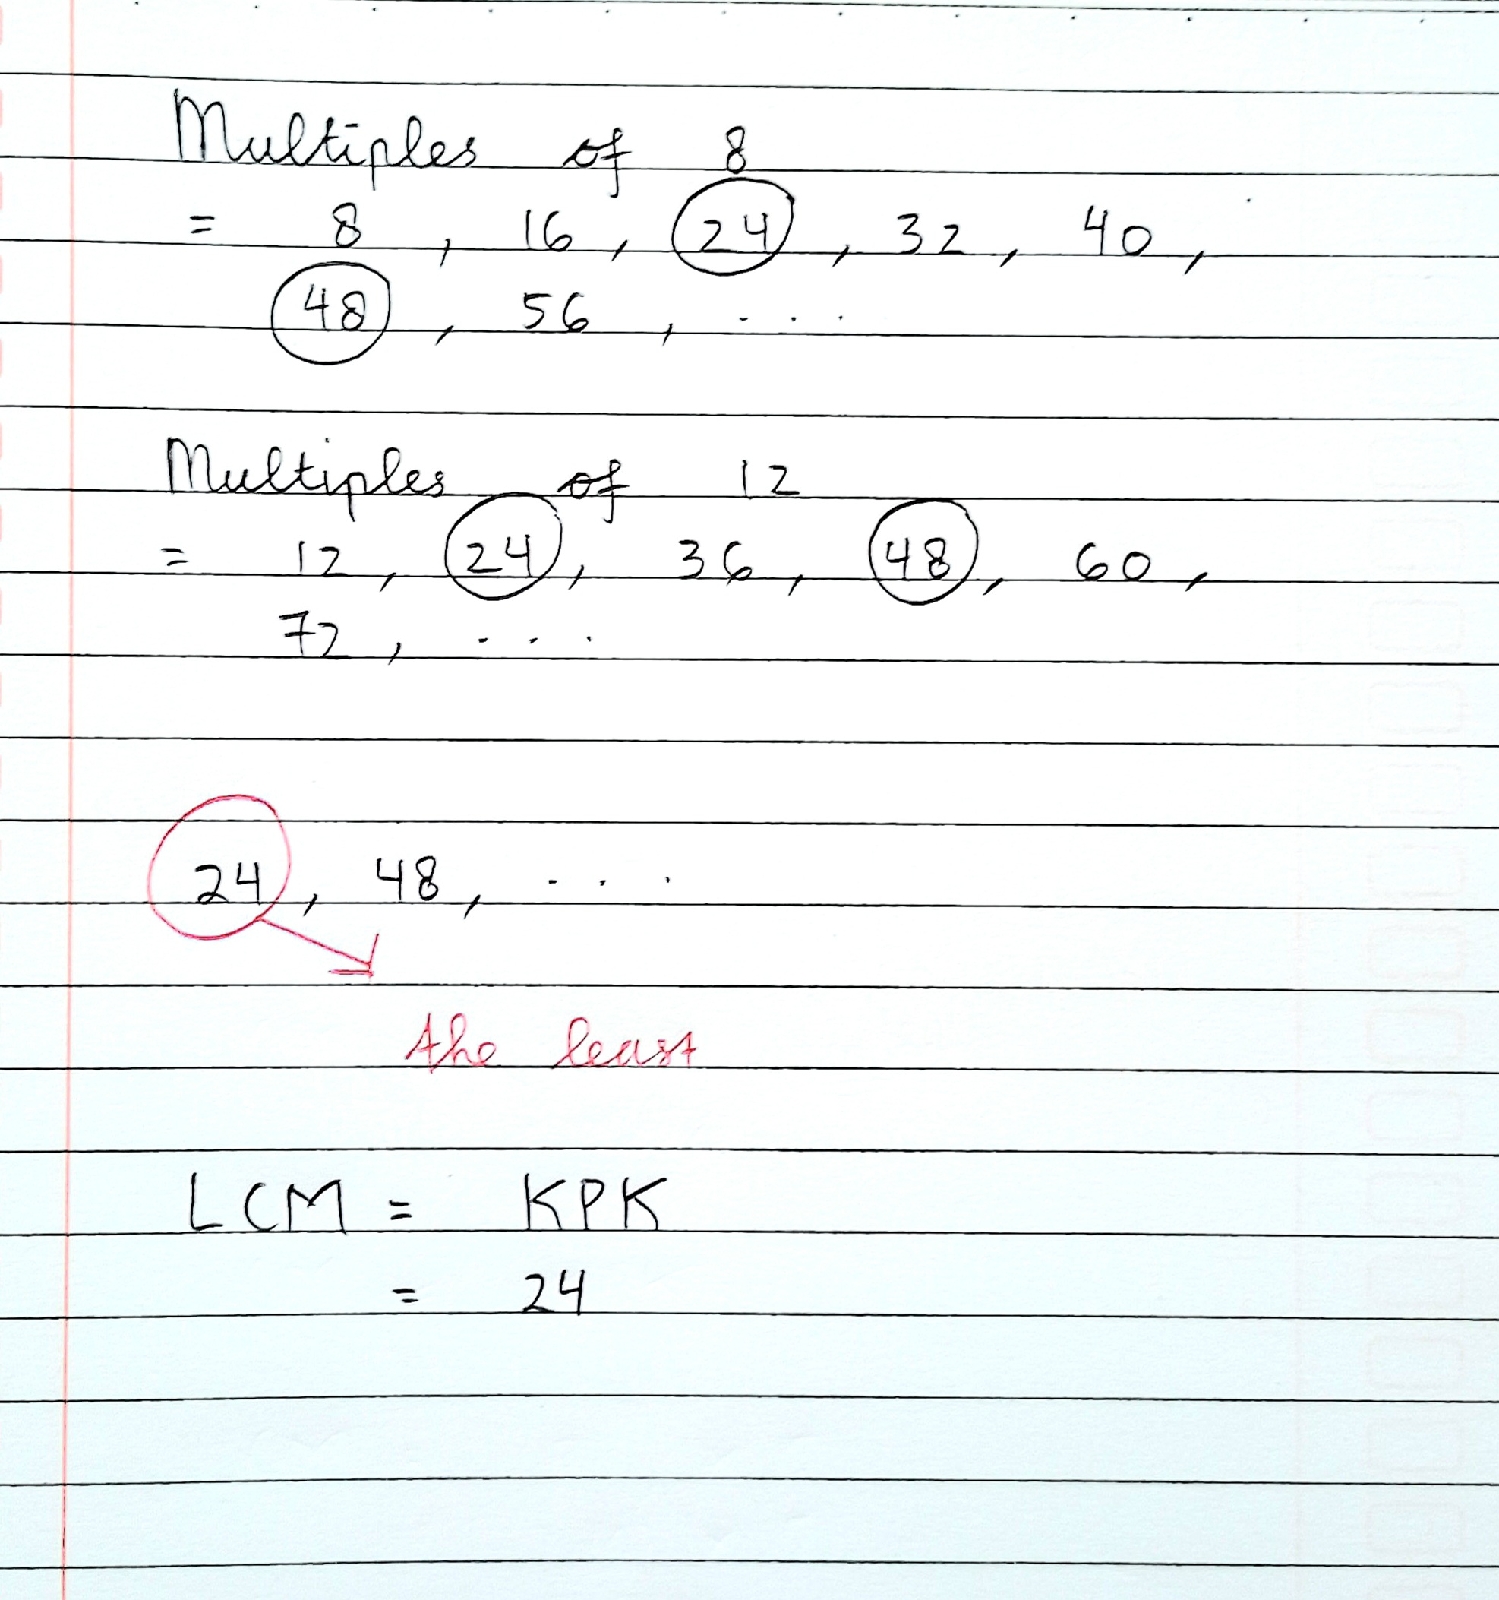 Multiples of 8
= 8 , 16 , 24 , 32 , 40 ,
48 , 56 , ...
Multiples of 12
= 12 , 24 , 36 , 48 , 60 ,
72 , ...
24 , 48 , ...
the least
LCM = KPK
= 24